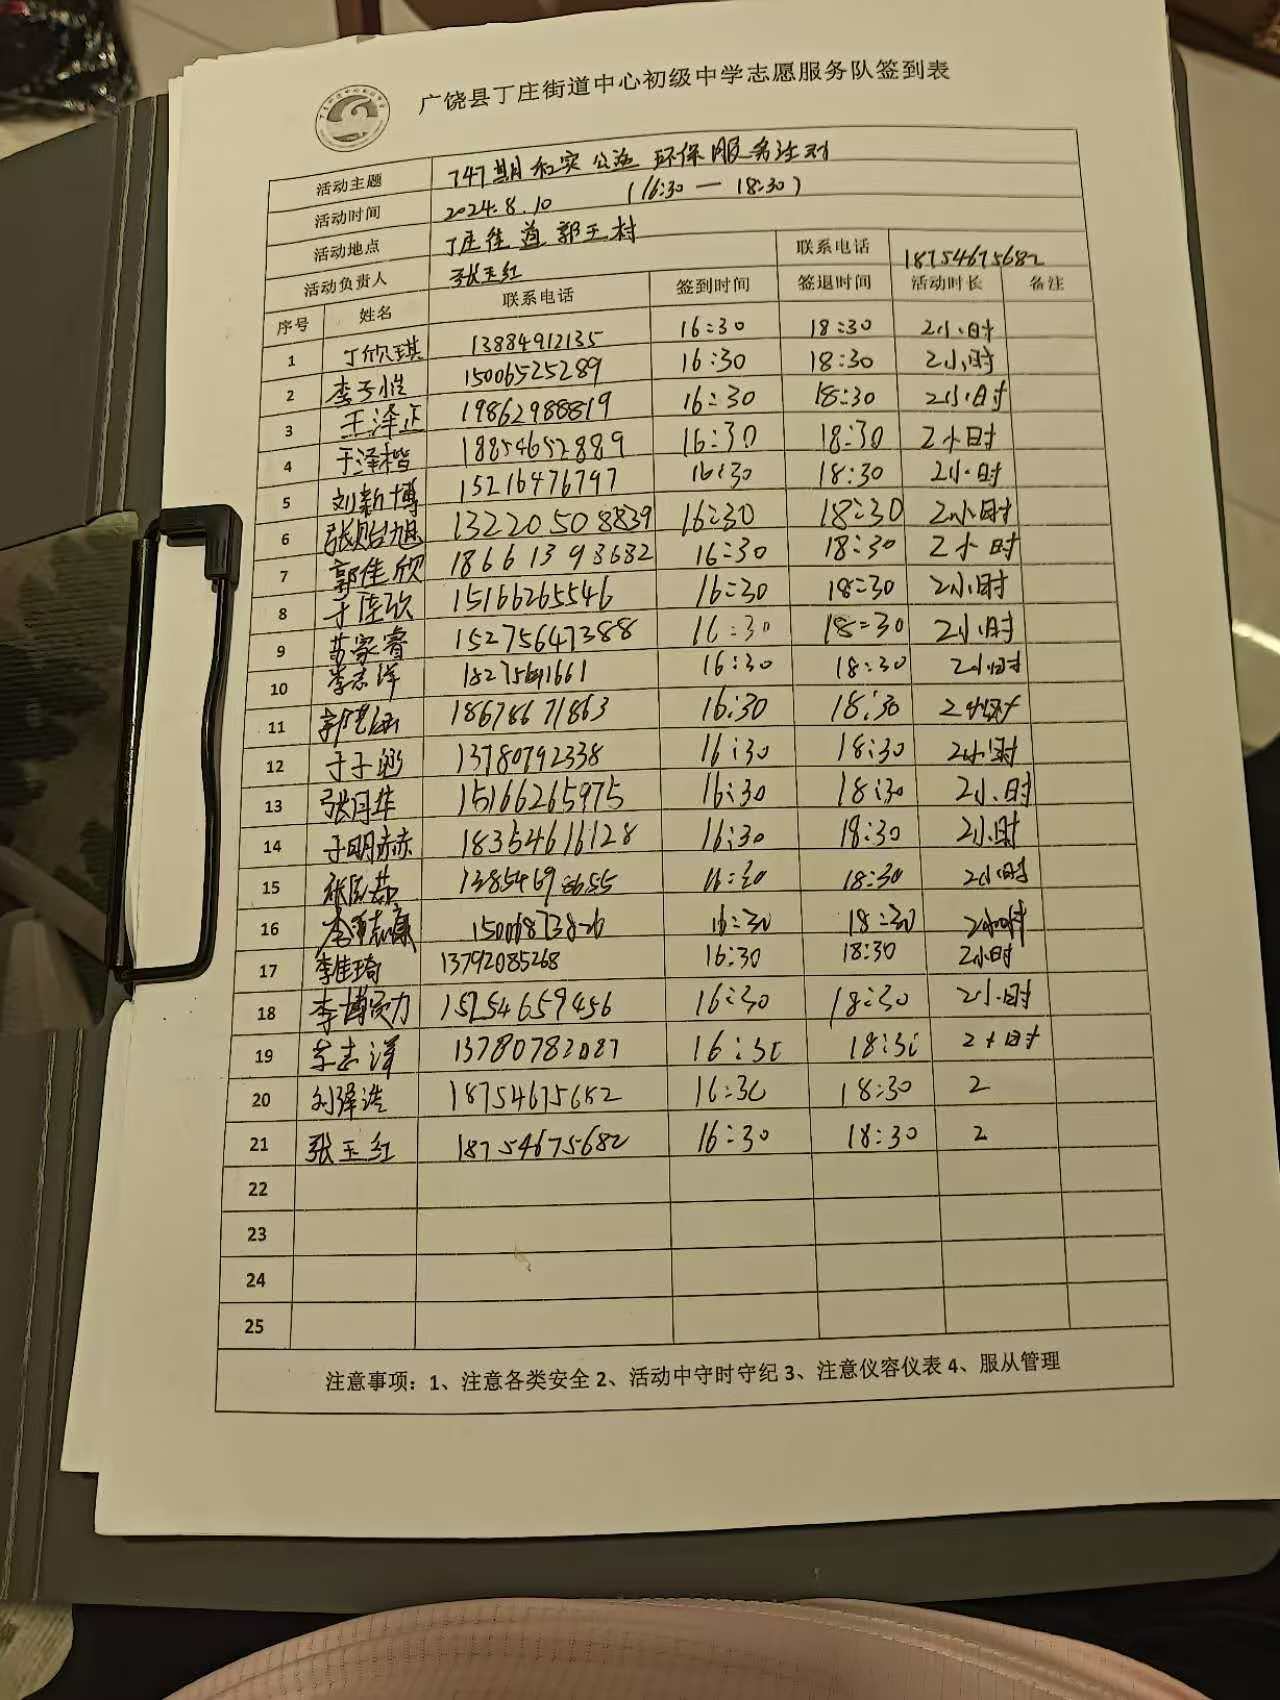 广饶县丁庄街道中心初级中学志愿服务队签到表
活动主题 747期和实公益 环保服务活动
活动时间 2024.8.10 (16:30—18:30)
活动地点 丁庄街道郭王村
活动负责人 张玉红 联系电话 18754675682
序号 姓名 联系电话 签到时间 签退时间 活动时长 备注
1 丁欣琪 13884912135 16:30 18:30 2小时
2 15006525289 16:30 18:30 2小时
3 王泽正 19862988819 16:30 18:30 2小时
4 于泽楷 18854652889 16:30 18:30 2小时
5 刘新博 15216476797 16:30 18:30 2小时
6 张贻旭 13220508839 16:30 18:30 2小时
7 郭佳欣 18661393682 16:30 18:30 2小时
8 于佳欣 15166265546 16:30 18:30 2小时
9 苏家睿 15275647388 16:30 18:30 2小时
10 李志洋 16:30 18:30 2小时
11 18678671863 16:30 18:30 2小时
12 13780792338 16:30 18:30 2小时
13 张月华 15166265975 16:30 18:30 2小时
14 于明赫 18354616128 16:30 18:30 2小时
15 16:30 18:30 2小时
16 16:30 18:30 2小时
17 李佳琦 13792085268 16:30 18:30 2小时
18 15254659456 16:30 18:30 2小时
19 13780782087 16:30 18:30 2小时
20 刘泽浩 18754675652 16:30 18:30 2
21 张玉红 18754675682 16:30 18:30 2
22
23
24
25
注意事项：1、注意各类安全 2、活动中守时守纪 3、注意仪容仪表 4、服从管理